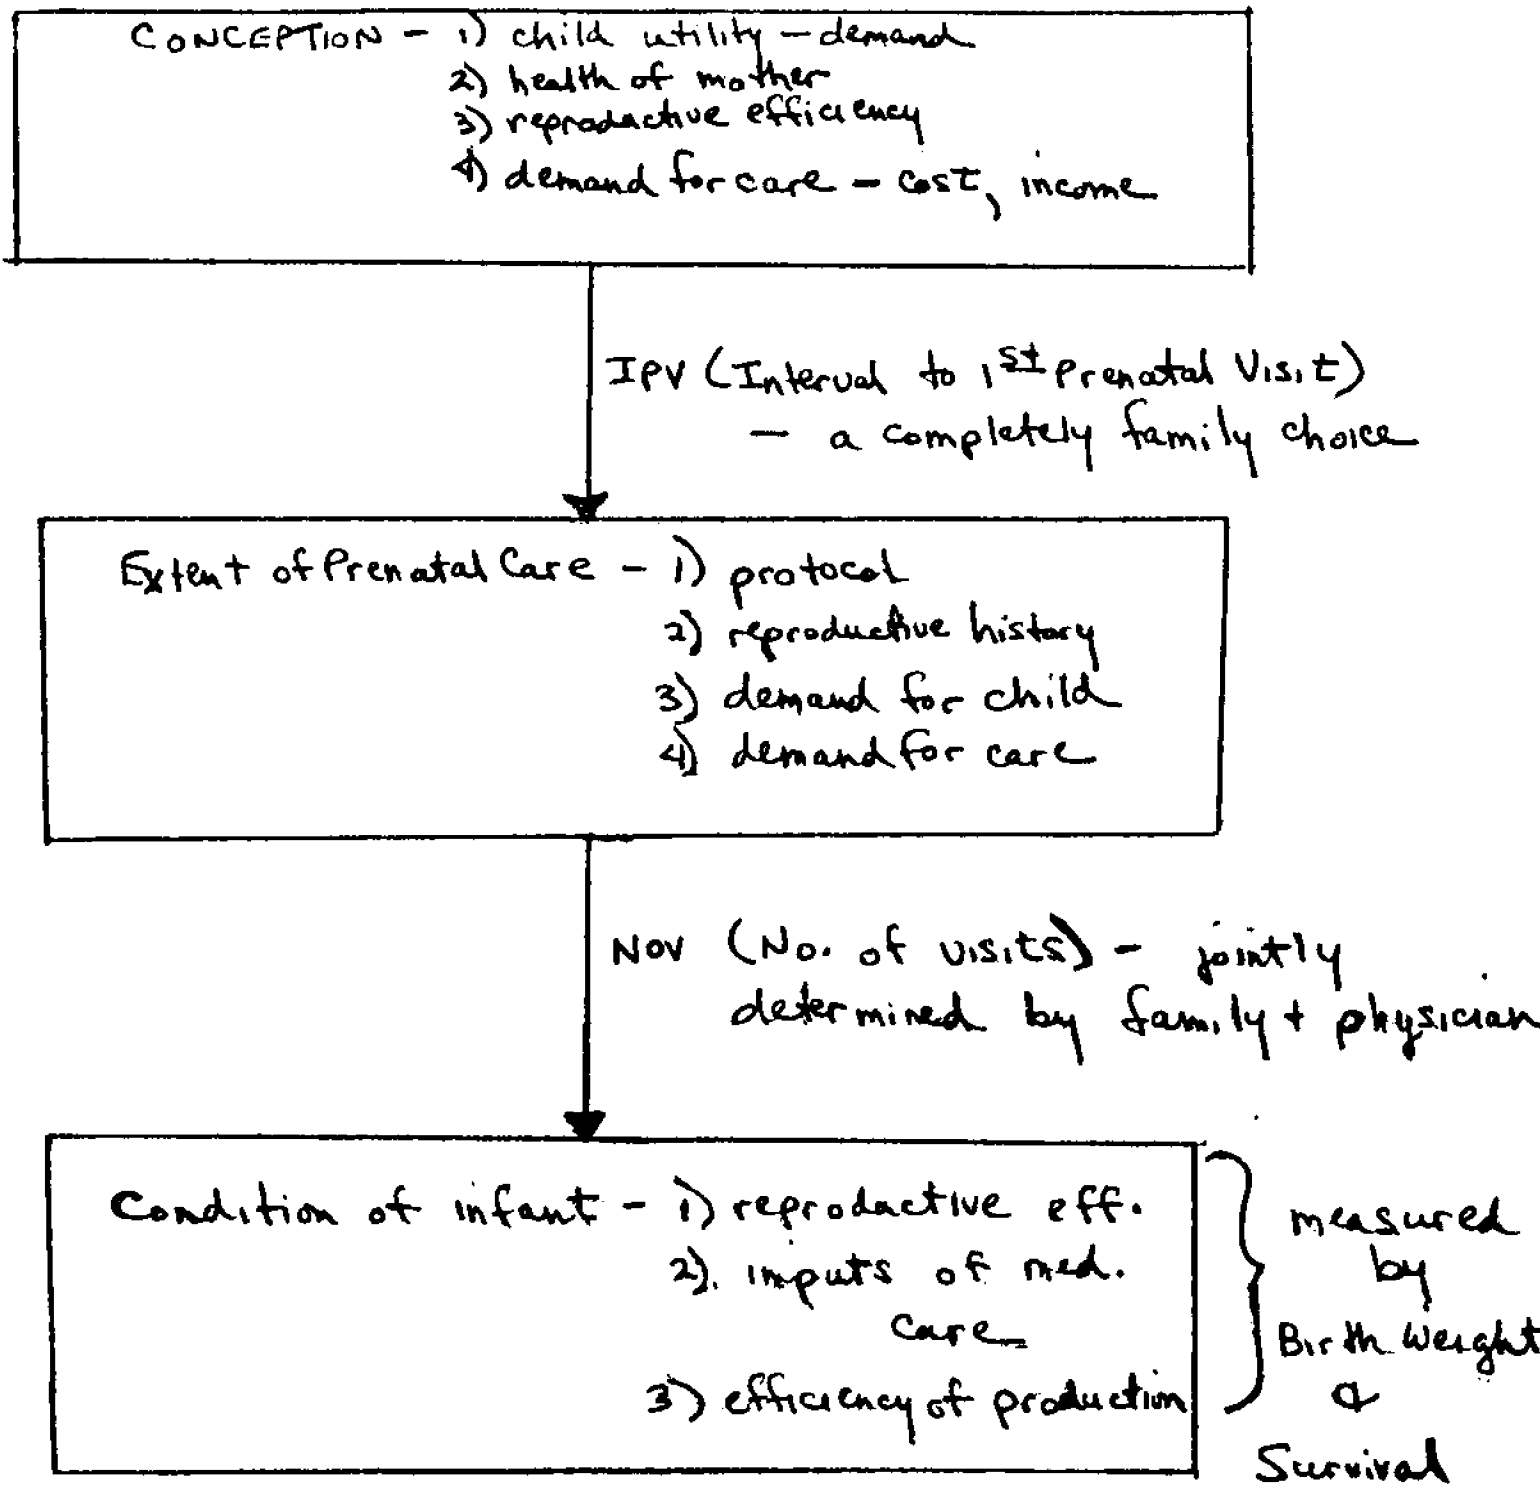 CONCEPTION - 1) child utility - demand
2) health of mother
3) reproductive efficiency
4) demand for care - cost, income
IPV (Interval to 1st Prenatal Visit)
- a completely family choice
Extent of Prenatal Care - 1) protocol
2) reproductive history
3) demand for child
4) demand for care
NOV (No. of visits) - jointly
determined by family + physician
Condition of infant - 1) reproductive eff.
2). inputs of med.
care
3) efficiency of production
measured
by
Birth Weight
&
Survival